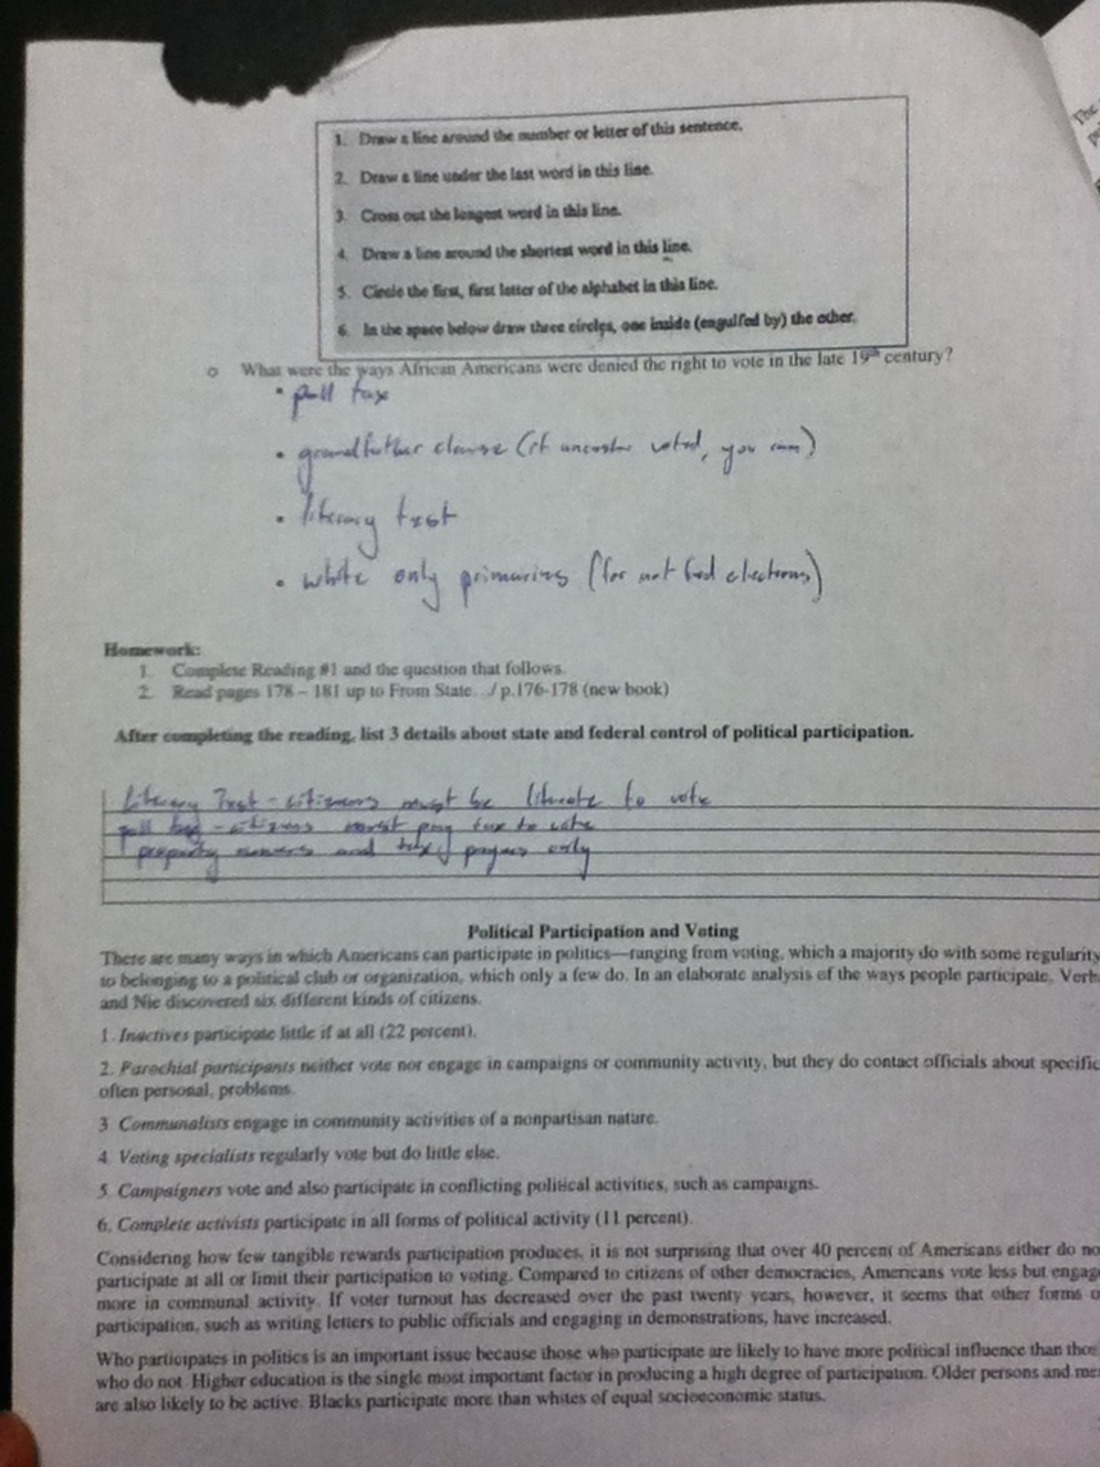 1. Draw a line around the number or letter of this sentence.
2. Draw a line under the last word in this line.
3. Cross out the longest word in this line.
4. Draw a line around the shortest word in this line.
5. Circle the first, first letter of the alphabet in this line.
6. In the space below draw three circles, one inside (engulfed by) the other.
o What were the ways African Americans were denied the right to vote in the late 19th century?
• poll tax
• grandfather clause (if ancestor voted, you can)
• literacy test
• white only primaries (for not fed elections)
Homework:
1. Complete Reading #1 and the question that follows.
2. Read pages 178 – 181 up to From State.../ p.176-178 (new book)
After completing the reading, list 3 details about state and federal control of political participation.
Literacy Test - citizens must be literate to vote
poll tax - citizens must pay tax to vote
property owners and tax payers only
Political Participation and Voting
There are many ways in which Americans can participate in politics—ranging from voting, which a majority do with some regularity
to belonging to a political club or organization, which only a few do. In an elaborate analysis of the ways people participate, Verb
and Nie discovered six different kinds of citizens.
1. Inactives participate little if at all (22 percent).
2. Parochial participants neither vote nor engage in campaigns or community activity, but they do contact officials about specific
often personal, problems.
3. Communalists engage in community activities of a nonpartisan nature.
4. Voting specialists regularly vote but do little else.
5. Campaigners vote and also participate in conflicting political activities, such as campaigns.
6. Complete activists participate in all forms of political activity (11 percent).
Considering how few tangible rewards participation produces, it is not surprising that over 40 percent of Americans either do no
participate at all or limit their participation to voting. Compared to citizens of other democracies, Americans vote less but engag
more in communal activity. If voter turnout has decreased over the past twenty years, however, it seems that other forms o
participation, such as writing letters to public officials and engaging in demonstrations, have increased.
Who participates in politics is an important issue because those who participate are likely to have more political influence than thos
who do not. Higher education is the single most important factor in producing a high degree of participation. Older persons and me
are also likely to be active. Blacks participate more than whites of equal socioeconomic status.
The